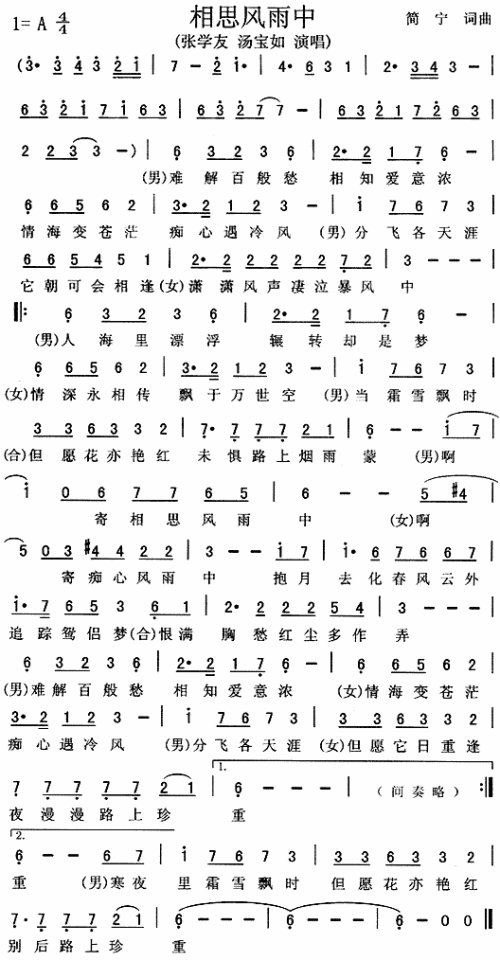 相思风雨中
1=A 4/4
简宁 词曲
(张学友 汤宝如 演唱)
(3· 3 4 3 2 1 | 7 - 2 1· | 4· 6 3 1 | 2· 3 4 3 4 8 |
6 3 2 1 7 1 6 3 | 6 3 2 7 7 - | 6 3 2 1 7 2 6 3 |
2 2 3 3 -) | 6 3 2 3 6 | 2· 2 1 7 6 - |
(男)难 解百般愁 相知爱意浓
6 6 5 6 2 | 3· 2 1 2 3 - | i 7 6 7 3 |
情海变苍茫 痴心遇冷风 (男)分飞各天涯
6 6 5 4 5 1 | 2· 2 2 2 2 7 2 | 3 - - - |
它朝可会相逢(女)潇潇风声凄泣暴风中
6 3 2 3 6 | 2· 2 1 7 6 - |
(男)人海里漂浮 辗转却是梦
6 6 5 6 2 | 3· 2 1 2 3 - | i 7 6 7 3 |
(女)情深永相传 飘于万世空 (男)当霜雪飘时
3 3 6 3 3 2 | 7· 7 7 7 2 1 | 6 - - i 7 |
(合)但愿花亦艳红 未惧路上烟雨蒙 (男)啊
i 0 6 7 7 6 5 | 6 - - 5 #4 |
寄相思风雨中 (女)啊
5 0 3 #4 4 2 2 | 3 - - i 7 | i· 6 7 6 6 7 |
寄痴心风雨中 抱月去化春风云外
i· 7 6 5 3 6 1 | 2· 2 2 2 5 4 | 3 - - - |
追踪鸳侣梦(合)恨满胸愁红尘多作弄
6 3 2 3 6 | 2· 2 1 7 6 - | 6 6 5 6 2 |
(男)难解百般愁 相知爱意浓 (女)情海变苍茫
3· 2 1 2 3 - | i 7 6 7 3 | 3 3 6 3 3 2 |
痴心遇冷风 (男)分飞各天涯 (女)但愿它日重逢
1.
7 7 7 7 7 2 1 | 6 - - - | (间奏略) :||
夜漫漫路上珍重
2.
6 - - 6 7 | i 7 6 7 3 | 3 3 6 3 3 2 |
重 (男)寒夜里霜雪飘时 但愿花亦艳红
7· 7 7 7 2 1 | 6 - - - | 6 - - - | 6 - 0 0 ||
别后路上珍重